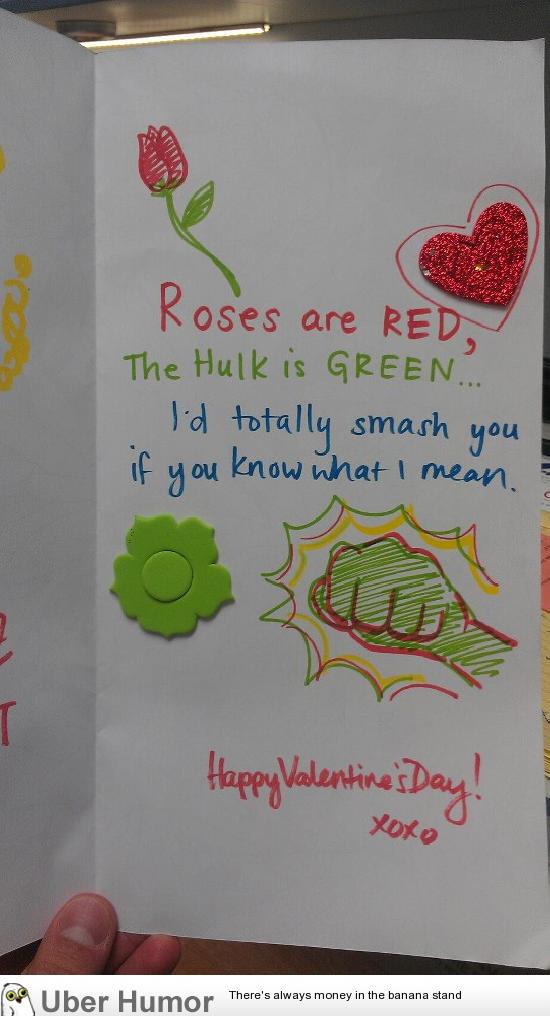 Roses are RED,
The Hulk is GREEN...
I'd totally smash you
if you know what I mean.
Happy Valentine's Day!
xoxo
Uber Humor
There's always money in the banana stand